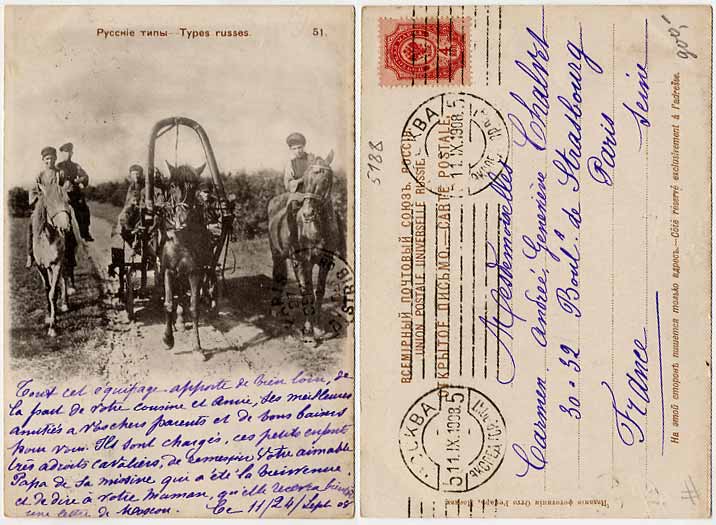 Русскіе типы — Types russes. 51.
Tout cet équipage apporte de bien loin, de
la part de votre cousine et amie, ses meilleures
amitiés a vos chers parents et de bons baisers
pour vous. Ils sont chargés, ces petits enfants
très adroits cavaliers, de remercier votre aimable
Papa de sa missive qui a été la bienvenue,
et de dire à votre Maman, qu'elle recevra bientôt
une lettre de Moscou. Ce 11/24/Sept 08
5188
ВСЕМІРНЫЙ ПОЧТОВЫЙ СОЮЗЪ. РОССІЯ.
UNION POSTALE UNIVERSELLE RUSSIE.
ОТКРЫТОЕ ПИСЬМО. — CARTE POSTALE.
МОСКВА
11.IX.1908
МОСКВА
11.IX.1908
4
Mesdemoiselles
Carmen, Andrée, Geneviève Chalvet
30-32 Boulᵈ de Strasbourg
Paris
Seine
France
На этой сторонѣ пишется только адресъ. — Côté réservé exclusivement à l'adresse.
Изданіе фототипіи Отто Ренаръ, Москва